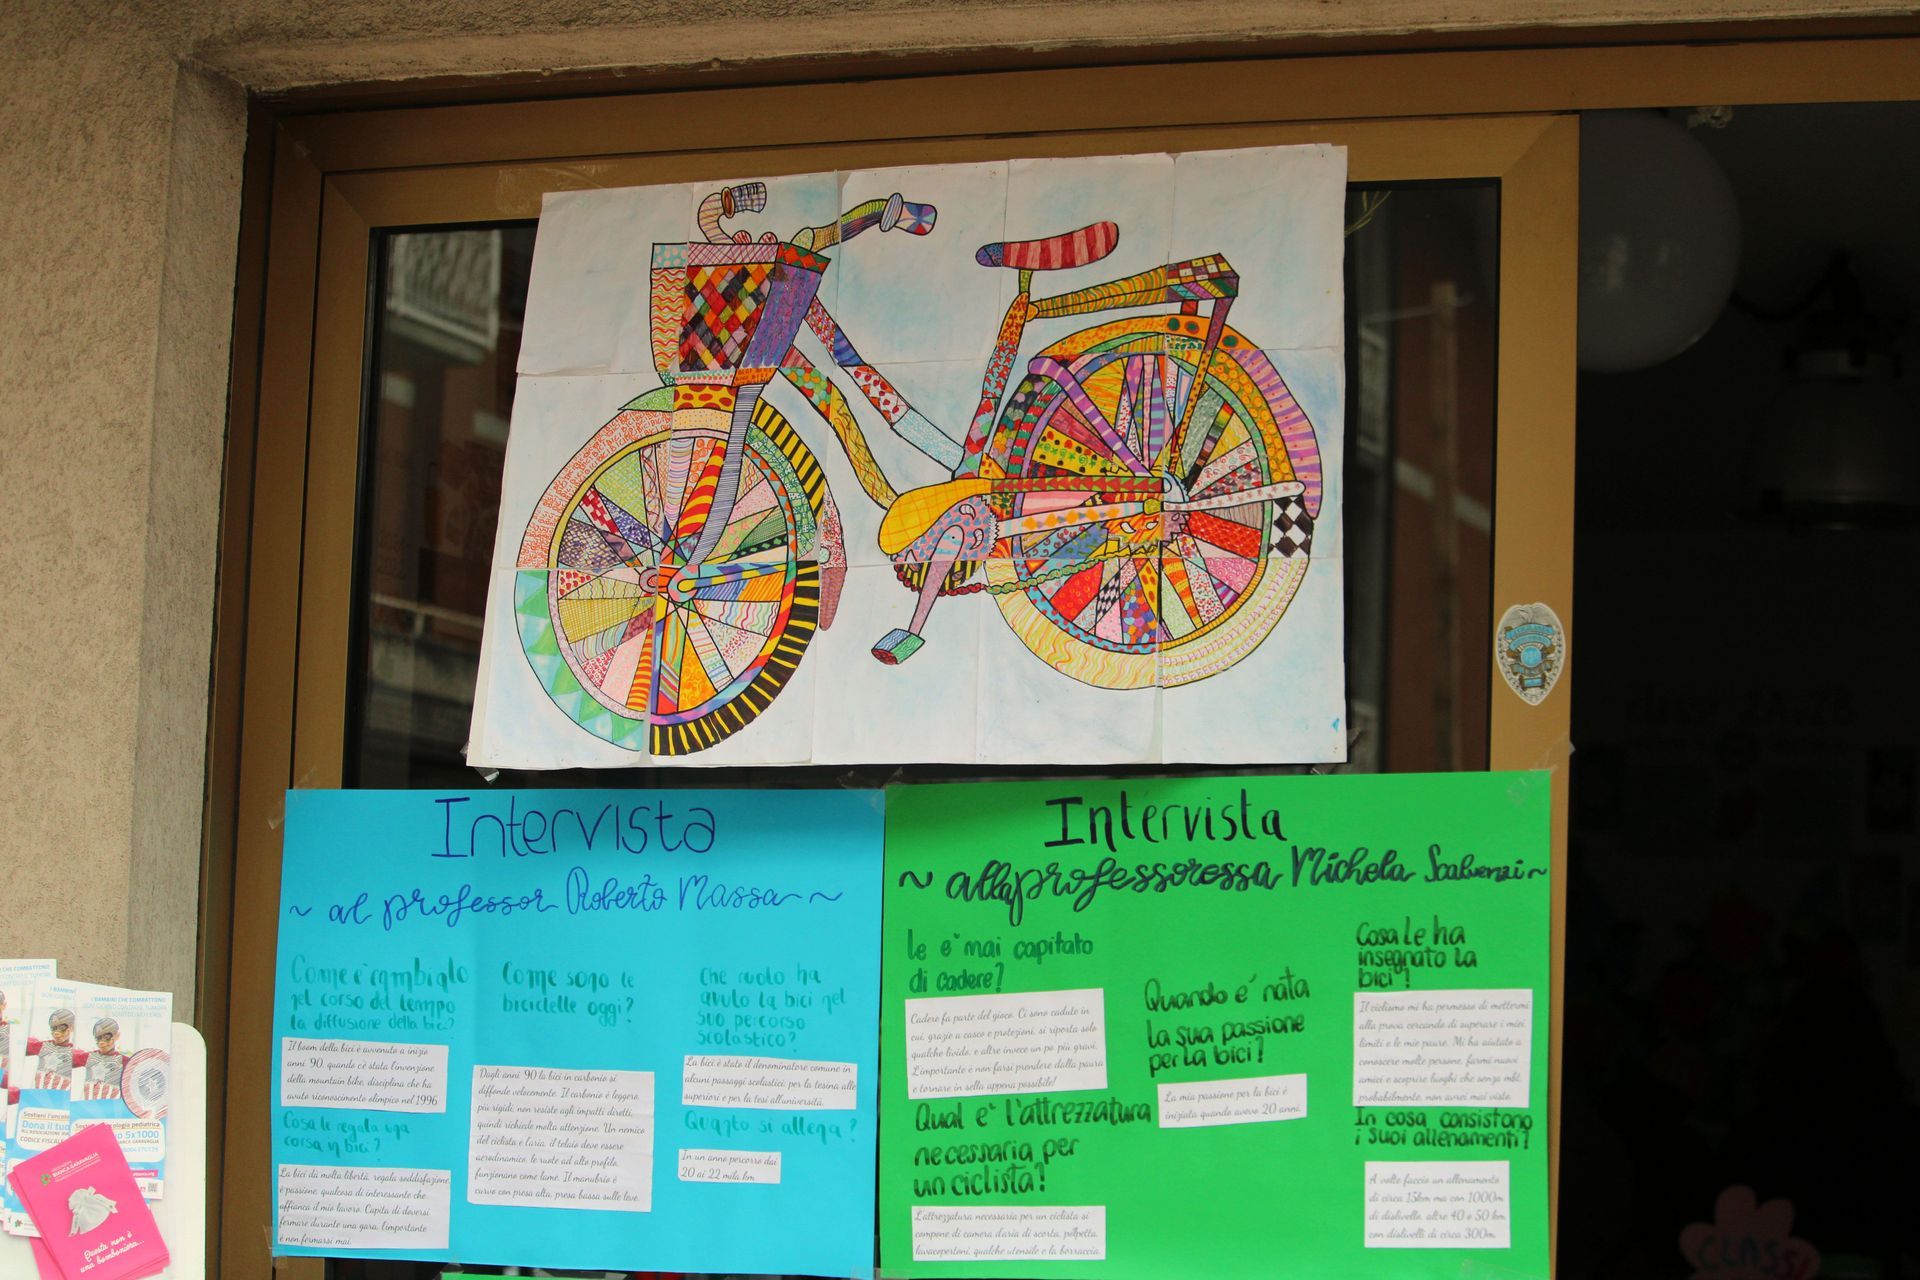 Intervista
~ al professor Roberto Massa ~
Come è cambiato
nel corso del tempo
la diffusione della bici?
Il boom della bici è avvenuto a inizio
anni '90, quando c'è stata l'invenzione
della mountain bike, disciplina che ha
avuto riconoscimento olimpico nel 1996.
Cosa le regala una
corsa in bici?
La bici dà molta libertà, regala soddisfazione,
è passione, qualcosa di interessante che
affianca il mio lavoro. Capita di doversi
fermare durante una gara, l'importante
è non fermarsi mai.
Come sono le
biciclette oggi?
Dagli anni '90 la bici in carbonio si
diffonde velocemente. Il carbonio è leggero,
più rigido, non resiste agli impatti diretti,
quindi richiede molta attenzione. Un nemico
del ciclista è l'aria, il telaio deve essere
aerodinamico, le ruote ad alto profilo,
funzionano come lame. Il manubrio è
curvo con presa alta, presa bassa sulle leve.
Che ruolo ha
avuto la bici nel
suo percorso
scolastico?
La bici è stato il denominatore comune in
alcuni passaggi scolastici: per la tesina alle
superiori e per la tesi all'università.
Quanto si allena?
In un anno percorro dai
20 ai 22 mila km
Intervista
~ alla professoressa Michela Scalvenzi ~
le è mai capitato
di cadere?
Cadere fa parte del gioco. Ci sono cadute in
cui, grazie a casco e protezioni, si riporta solo
qualche livido, e altre invece un po' più gravi.
L'importante è non farsi prendere dalla paura
e tornare in sella appena possibile!
Qual è l'attrezzatura
necessaria per
un ciclista?
L'attrezzatura necessaria per un ciclista si
compone di camera d'aria di scorta, pompetta,
lavacopertoni, qualche utensile e la borraccia.
Quando è nata
la sua passione
per la bici?
La mia passione per la bici è
iniziata quando avevo 20 anni.
Cosa le ha
insegnato la
bici?
Il ciclismo mi ha permesso di mettermi
alla prova cercando di superare i miei
limiti e le mie paure. Mi ha aiutato a
conoscere molte persone, farmi nuovi
amici e scoprire luoghi che senza mbt,
probabilmente, non avrei mai visto.
In cosa consistono
i suoi allenamenti?
A volte faccio un allenamento
di circa 15km ma con 1000m
di dislivello, altre 40 o 50 km
con dislivelli di circa 300m.
I BAMBINI CHE COMBATTONO
Dona il tuo
5x1000
BIANCA GARAVAGLIA
Questa non è
una bomboniera...
CLASS